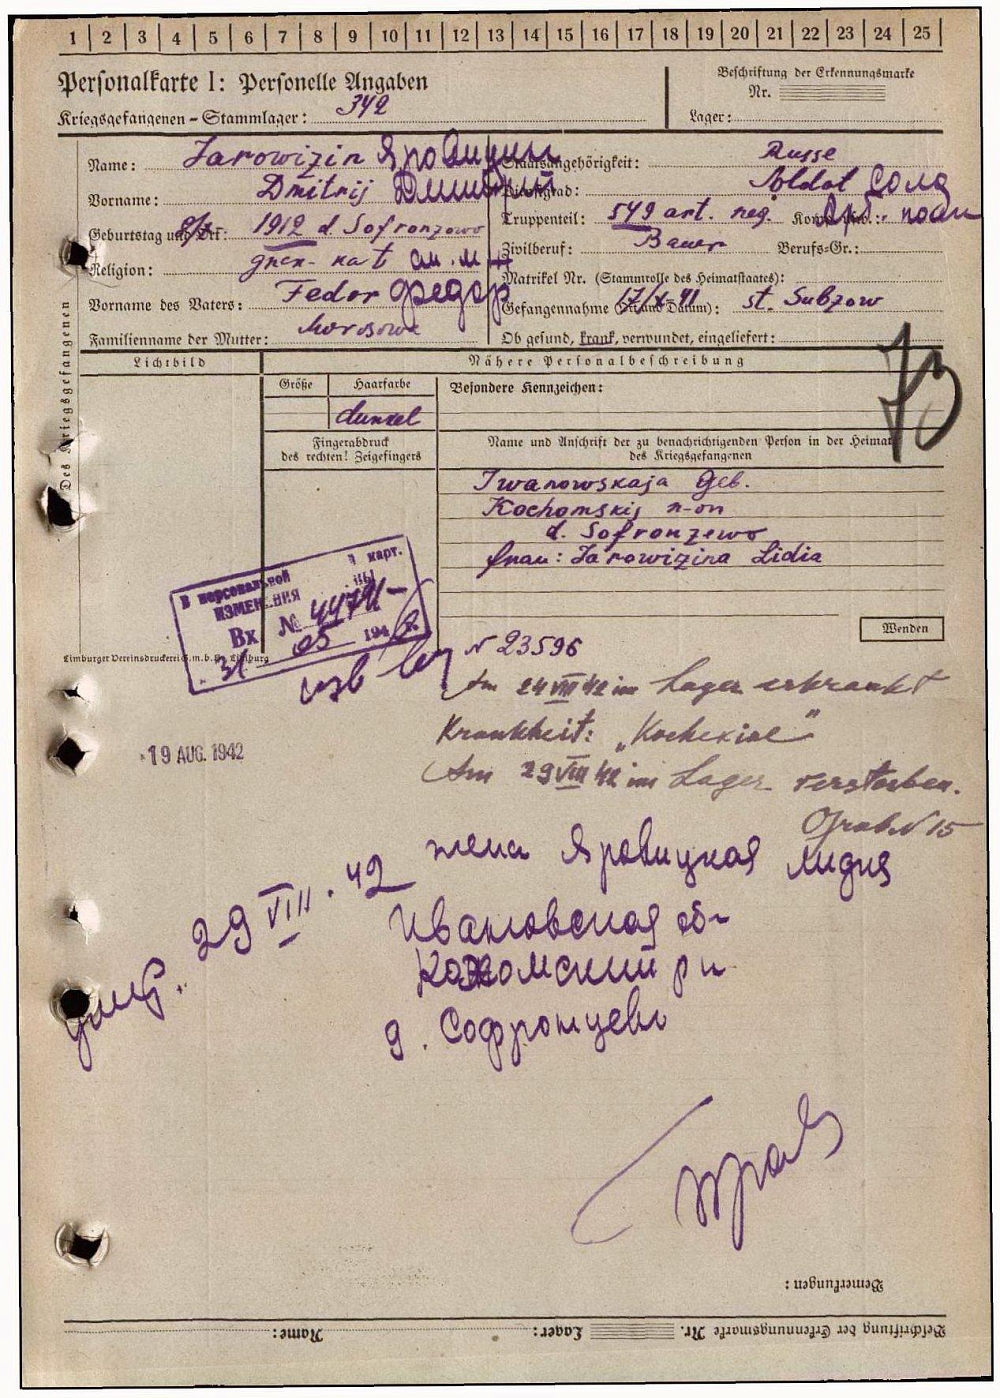 1 2 3 4 5 6 7 8 9 10 11 12 13 14 15 16 17 18 19 20 21 22 23 24 25
Personalkarte I: Personelle Angaben
Kriegsgefangenen-Stammlager: 342
Beschriftung der Erkennungsmarke
Nr.
Lager:
Des Kriegsgefangenen
Name: Jarowizin Яровицин
Vorname: Dmitrij Дмитрий
Geburtstag und Ort: 1912 d. Sofronzewo
Religion:
Vorname des Vaters: Fedor Федор
Familienname der Mutter: Morosowa
Staatsangehörigkeit: Russe
Dienstgrad: Soldat Солд
Truppenteil: 549 art. reg. Komp. usw.: Арт. полк
Zivilberuf: Bauer Berufs-Gr.:
Matrikel Nr. (Stammrolle des Heimatstaates):
Gefangennahme (Ort und Datum): 17/X 41 st. Subzow
Ob gesund, krank, verwundet, eingeliefert:
Lichtbild
Nähere Personalbeschreibung
Größe Haarfarbe
dunkel
Besondere Kennzeichen:
Fingerabdruck
des rechten! Zeigefingers
Name und Anschrift der zu benachrichtigenden Person in der Heimat
des Kriegsgefangenen
Iwanowskaja Geb.
Kochomskij r-on
d. Sofronzewo
frau: Jarowizina Lidia
Wenden
В персональной карт.
ИЗМЕНЕНИЯ
Вх №
31 05 194
Limburger Vereinsdruckerei G.m.b.H. Limburg
N 23596
Am 24 VIII 42 im Lager erkrankt
Krankheit: „Kochexiae"
Am 29 VIII 42 im Lager verstorben.
Grab N 15
19 AUG. 1942
жена Яровицкая Лидия
29 VIII. 42
Ивановская об-
Кохомский р н
д. Софронцево
умер.
Bemerkungen:
Name: Lager: Beschriftung der Erkennungsmarke Nr.